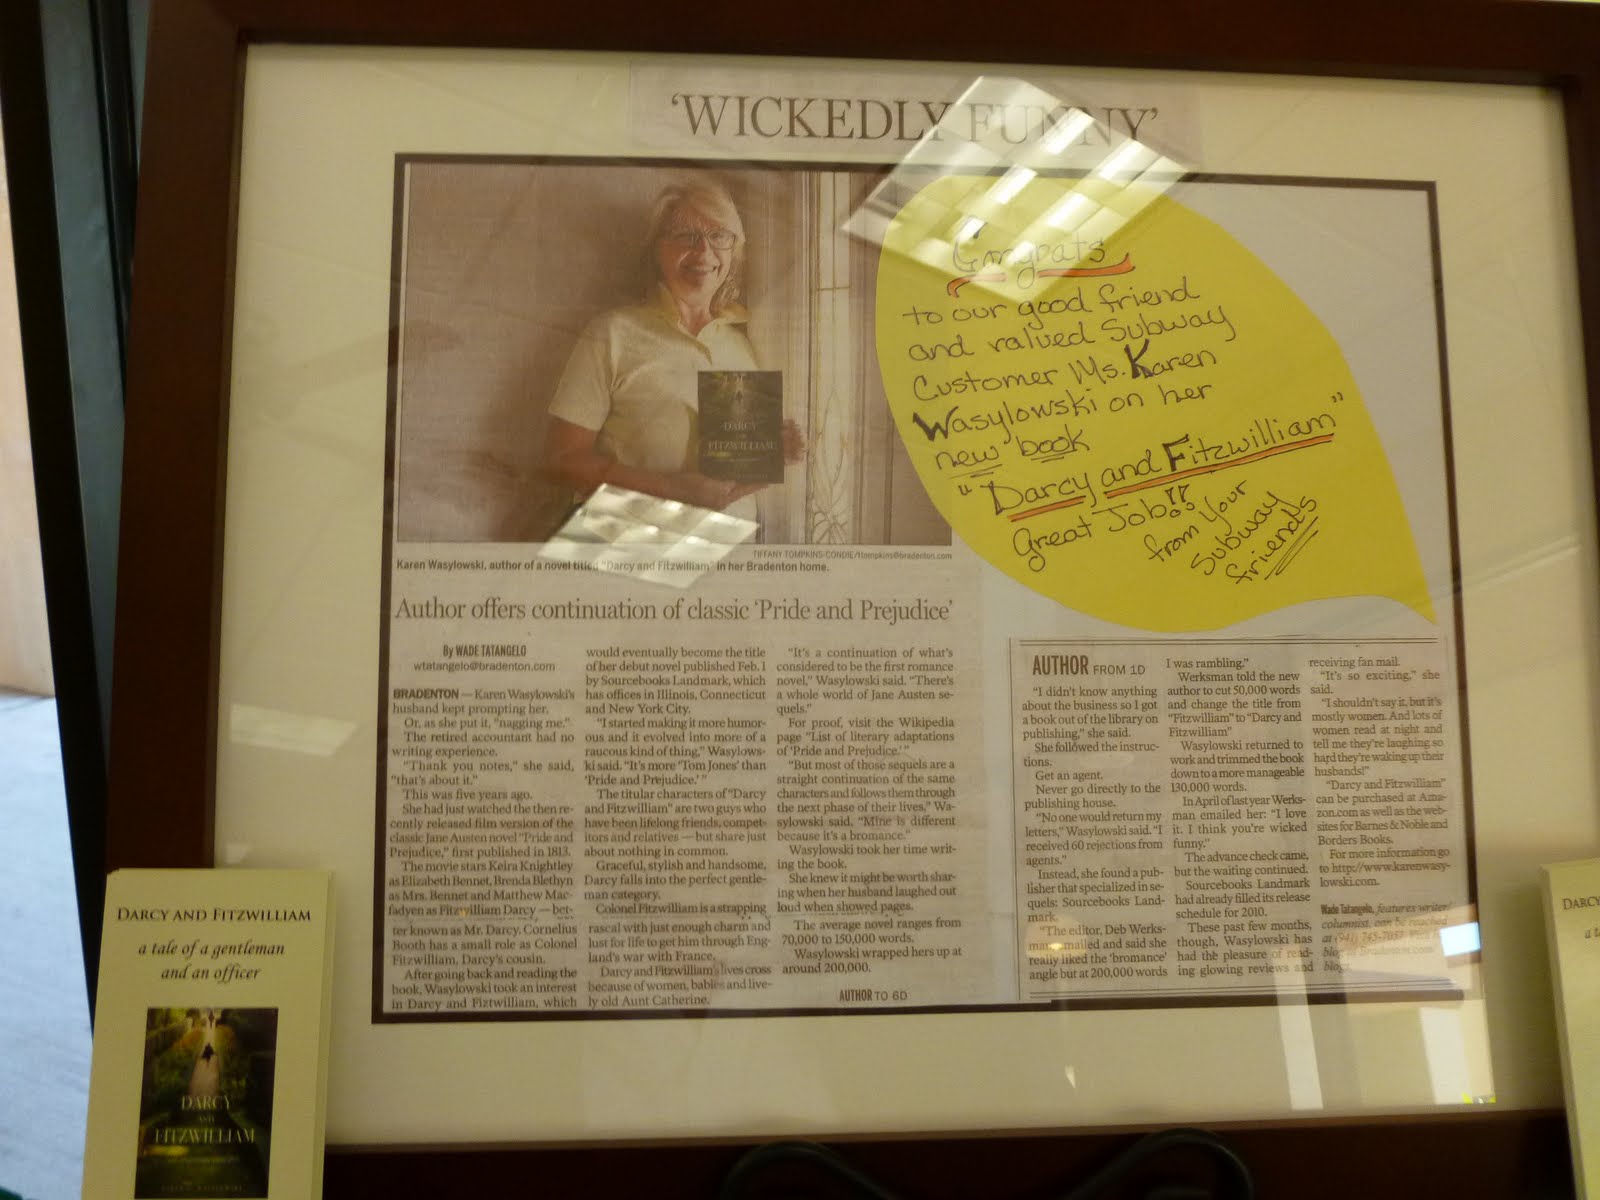 'WICKEDLY FUNNY'
Congrats
to our good friend
and valued Subway
Customer Ms. Karen
Wasylowski on her
new book
"Darcy and Fitzwilliam"
Great Job!!
from your
Subway
friends
TIFFANY TOMPKINS-CONDIE/ttompkins@bradenton.com
Karen Wasylowski, author of a novel titled "Darcy and Fitzwilliam" in her Bradenton home.
Author offers continuation of classic 'Pride and Prejudice'
By WADE TATANGELO
wtatangelo@bradenton.com
BRADENTON — Karen Wasylowski's
husband kept prompting her.
Or, as she put it, "nagging me."
The retired accountant had no
writing experience.
"Thank you notes," she said,
"that's about it."
This was five years ago.
She had just watched the then re-
cently released film version of the
classic Jane Austen novel "Pride and
Prejudice," first published in 1813.
The movie stars Keira Knightley
as Elizabeth Bennet, Brenda Blethyn
as Mrs. Bennet and Matthew Mac-
fadyen as Fitzwilliam Darcy — bet-
ter known as Mr. Darcy. Cornelius
Booth has a small role as Colonel
Fitzwilliam, Darcy's cousin.
After going back and reading the
book, Wasylowski took an interest
in Darcy and Fiztwilliam, which
would eventually become the title
of her debut novel published Feb. 1
by Sourcebooks Landmark, which
has offices in Illinois, Connecticut
and New York City.
"I started making it more humor-
ous and it evolved into more of a
raucous kind of thing," Wasylows-
ki said. "It's more 'Tom Jones' than
'Pride and Prejudice.'"
The titular characters of "Darcy
and Fitzwilliam" are two guys who
have been lifelong friends, compet-
itors and relatives — but share just
about nothing in common.
Graceful, stylish and handsome,
Darcy falls into the perfect gentle-
man category.
Colonel Fitzwilliam is a strapping
rascal with just enough charm and
lust for life to get him through Eng-
land's war with France.
Darcy and Fitzwilliam's lives cross
because of women, babies and live-
ly old Aunt Catherine.
"It's a continuation of what's
considered to be the first romance
novel," Wasylowski said. "There's
a whole world of Jane Austen se-
quels."
For proof, visit the Wikipedia
page "List of literary adaptations
of 'Pride and Prejudice.'"
"But most of those sequels are a
straight continuation of the same
characters and follows them through
the next phase of their lives," Wa-
sylowski said. "Mine is different
because it's a bromance."
Wasylowski took her time writ-
ing the book.
She knew it might be worth shar-
ing when her husband laughed out
loud when showed pages.
The average novel ranges from
70,000 to 150,000 words.
Wasylowski wrapped hers up at
around 200,000.
AUTHOR TO 6D
AUTHOR FROM 1D
"I didn't know anything
about the business so I got
a book out of the library on
publishing," she said.
She followed the instruc-
tions.
Get an agent.
Never go directly to the
publishing house.
"No one would return my
letters," Wasylowski said. "I
received 60 rejections from
agents."
Instead, she found a pub-
lisher that specialized in se-
quels: Sourcebooks Land-
mark.
"The editor, Deb Werks-
man, mailed and said she
really liked the 'bromance'
angle but at 200,000 words
I was rambling."
Werksman told the new
author to cut 50,000 words
and change the title from
"Fitzwilliam" to "Darcy and
Fitzwilliam"
Wasylowski returned to
work and trimmed the book
down to a more manageable
130,000 words.
In April of last year Werks-
man emailed her: "I love
it. I think you're wicked
funny."
The advance check came,
but the waiting continued.
Sourcebooks Landmark
had already filled its release
schedule for 2010.
These past few months,
though, Wasylowski has
had the pleasure of read-
ing glowing reviews and
receiving fan mail.
"It's so exciting," she
said.
"I shouldn't say it, but it's
mostly women. And lots of
women read at night and
tell me they're laughing so
hard they're waking up their
husbands!"
"Darcy and Fitzwilliam"
can be purchased at Ama-
zon.com as well as the web-
sites for Barnes & Noble and
Borders Books.
For more information go
to http://www.karenwasy-
lowski.com.
Wade Tatangelo, features writer/
columnist, can be reached
at (941) 745-7057.
DARCY AND FITZWILLIAM
a tale of a gentleman
and an officer
DARCY
AND
FITZWILLIAM
DARCY
AND
FITZWILLIAM
DARCY